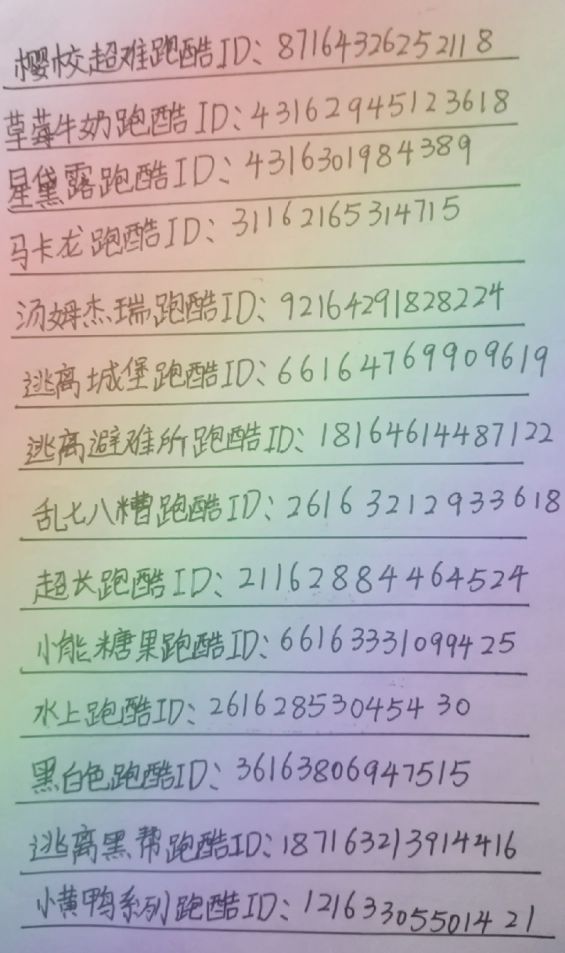 樱校超难跑酷ID：87164326252118
草莓牛奶跑酷ID：43162945123618
星黛露跑酷ID：4316301984389
马卡龙跑酷ID：31162165314715
汤姆杰瑞跑酷ID：92164291828224
逃离城堡跑酷ID：66164769909619
逃离避难所跑酷ID：18164614487122
乱七八糟跑酷ID：26163212933618
超长跑酷ID：21162884464524
小熊糖果跑酷ID：66163331099425
水上跑酷ID：26162853045430
黑白色跑酷ID：36163806947515
逃离黑帮跑酷ID：187163213914416
小黄鸭系列跑酷ID：12163305501421